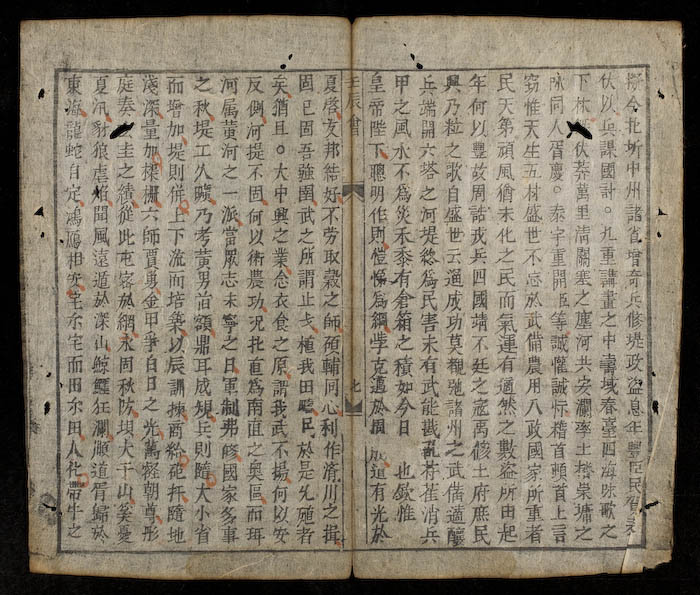 擬今北圻中州諸省增奇兵修堤政盜息年豐臣民賀表
伏以兵謀國計。九重講畫之中壽域春臺四海咏歌之
下林 伏莽萬里清關塞之塵河共安瀾率土樓崇墉之
咏同人胥慶。泰宇重開臣等誠懽誠忭稽首頓首上言
竊惟天生五材盛世不忘於武備農用八政國家所重者
民天第頑風猶未化之民而氣運有適然之數盜所由起
年何以豐故周詰戎兵四國靖不廷之寇禹修土府庶民
興乃粒之歌自盛世云遥成功莫覩弛諸州之武備適釀
兵端開六塔之河堤總為民害未有武能戢亂萑苻消兵
甲之風水不為災禾黍有倉箱之積如今日 也欽惟
皇帝陛下聰明作則愷悌為綱 克 於周 道有光於
夏啓友邦結好不勞取榖之師預輔同心利作濟川之揖
固已固吾強圉武之所謂止戈植我田疇民於是先殖者
矣猶且。大中興之業念衣食之原謂我武不揚何以安
反側河堤不固何以術農功况北直為南直之奧區而珥
河属黃河之一派當夙志未寧之日軍制弗修國家多事
之秋堤工久曠乃考黃男治額鼎耳成規兵則隨大小省
而增加堤則併上下流而培築以辰訓揀商綜砲杆隨地
淺深量加椿柵六師賈勇金甲爭白日之光萬輕朝尊彤
庭奏 圭之績從此屯客於網 周秋防壩大千山奚憂
夏汛豺狼 焰聞風遠遁於深山鯨鱷狂瀾順道胥歸於
東海龍蛇自定鴻鴈相安宅尔宅而田尔田人化帶牛之
壬辰會
北